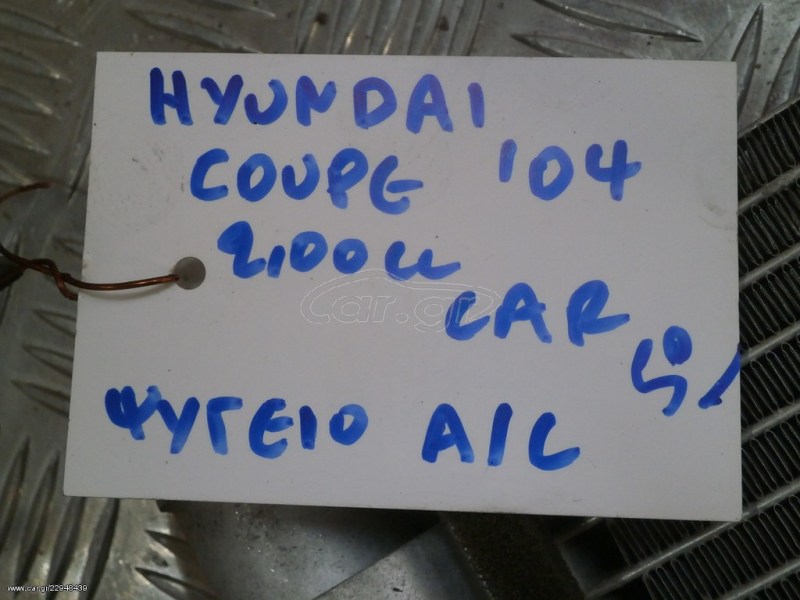 HYUNDAI
COUPE '04
2,00cc
CAR
ΨΥΓΕΙΟ A/C
car.gr
www.car.gr/22948439